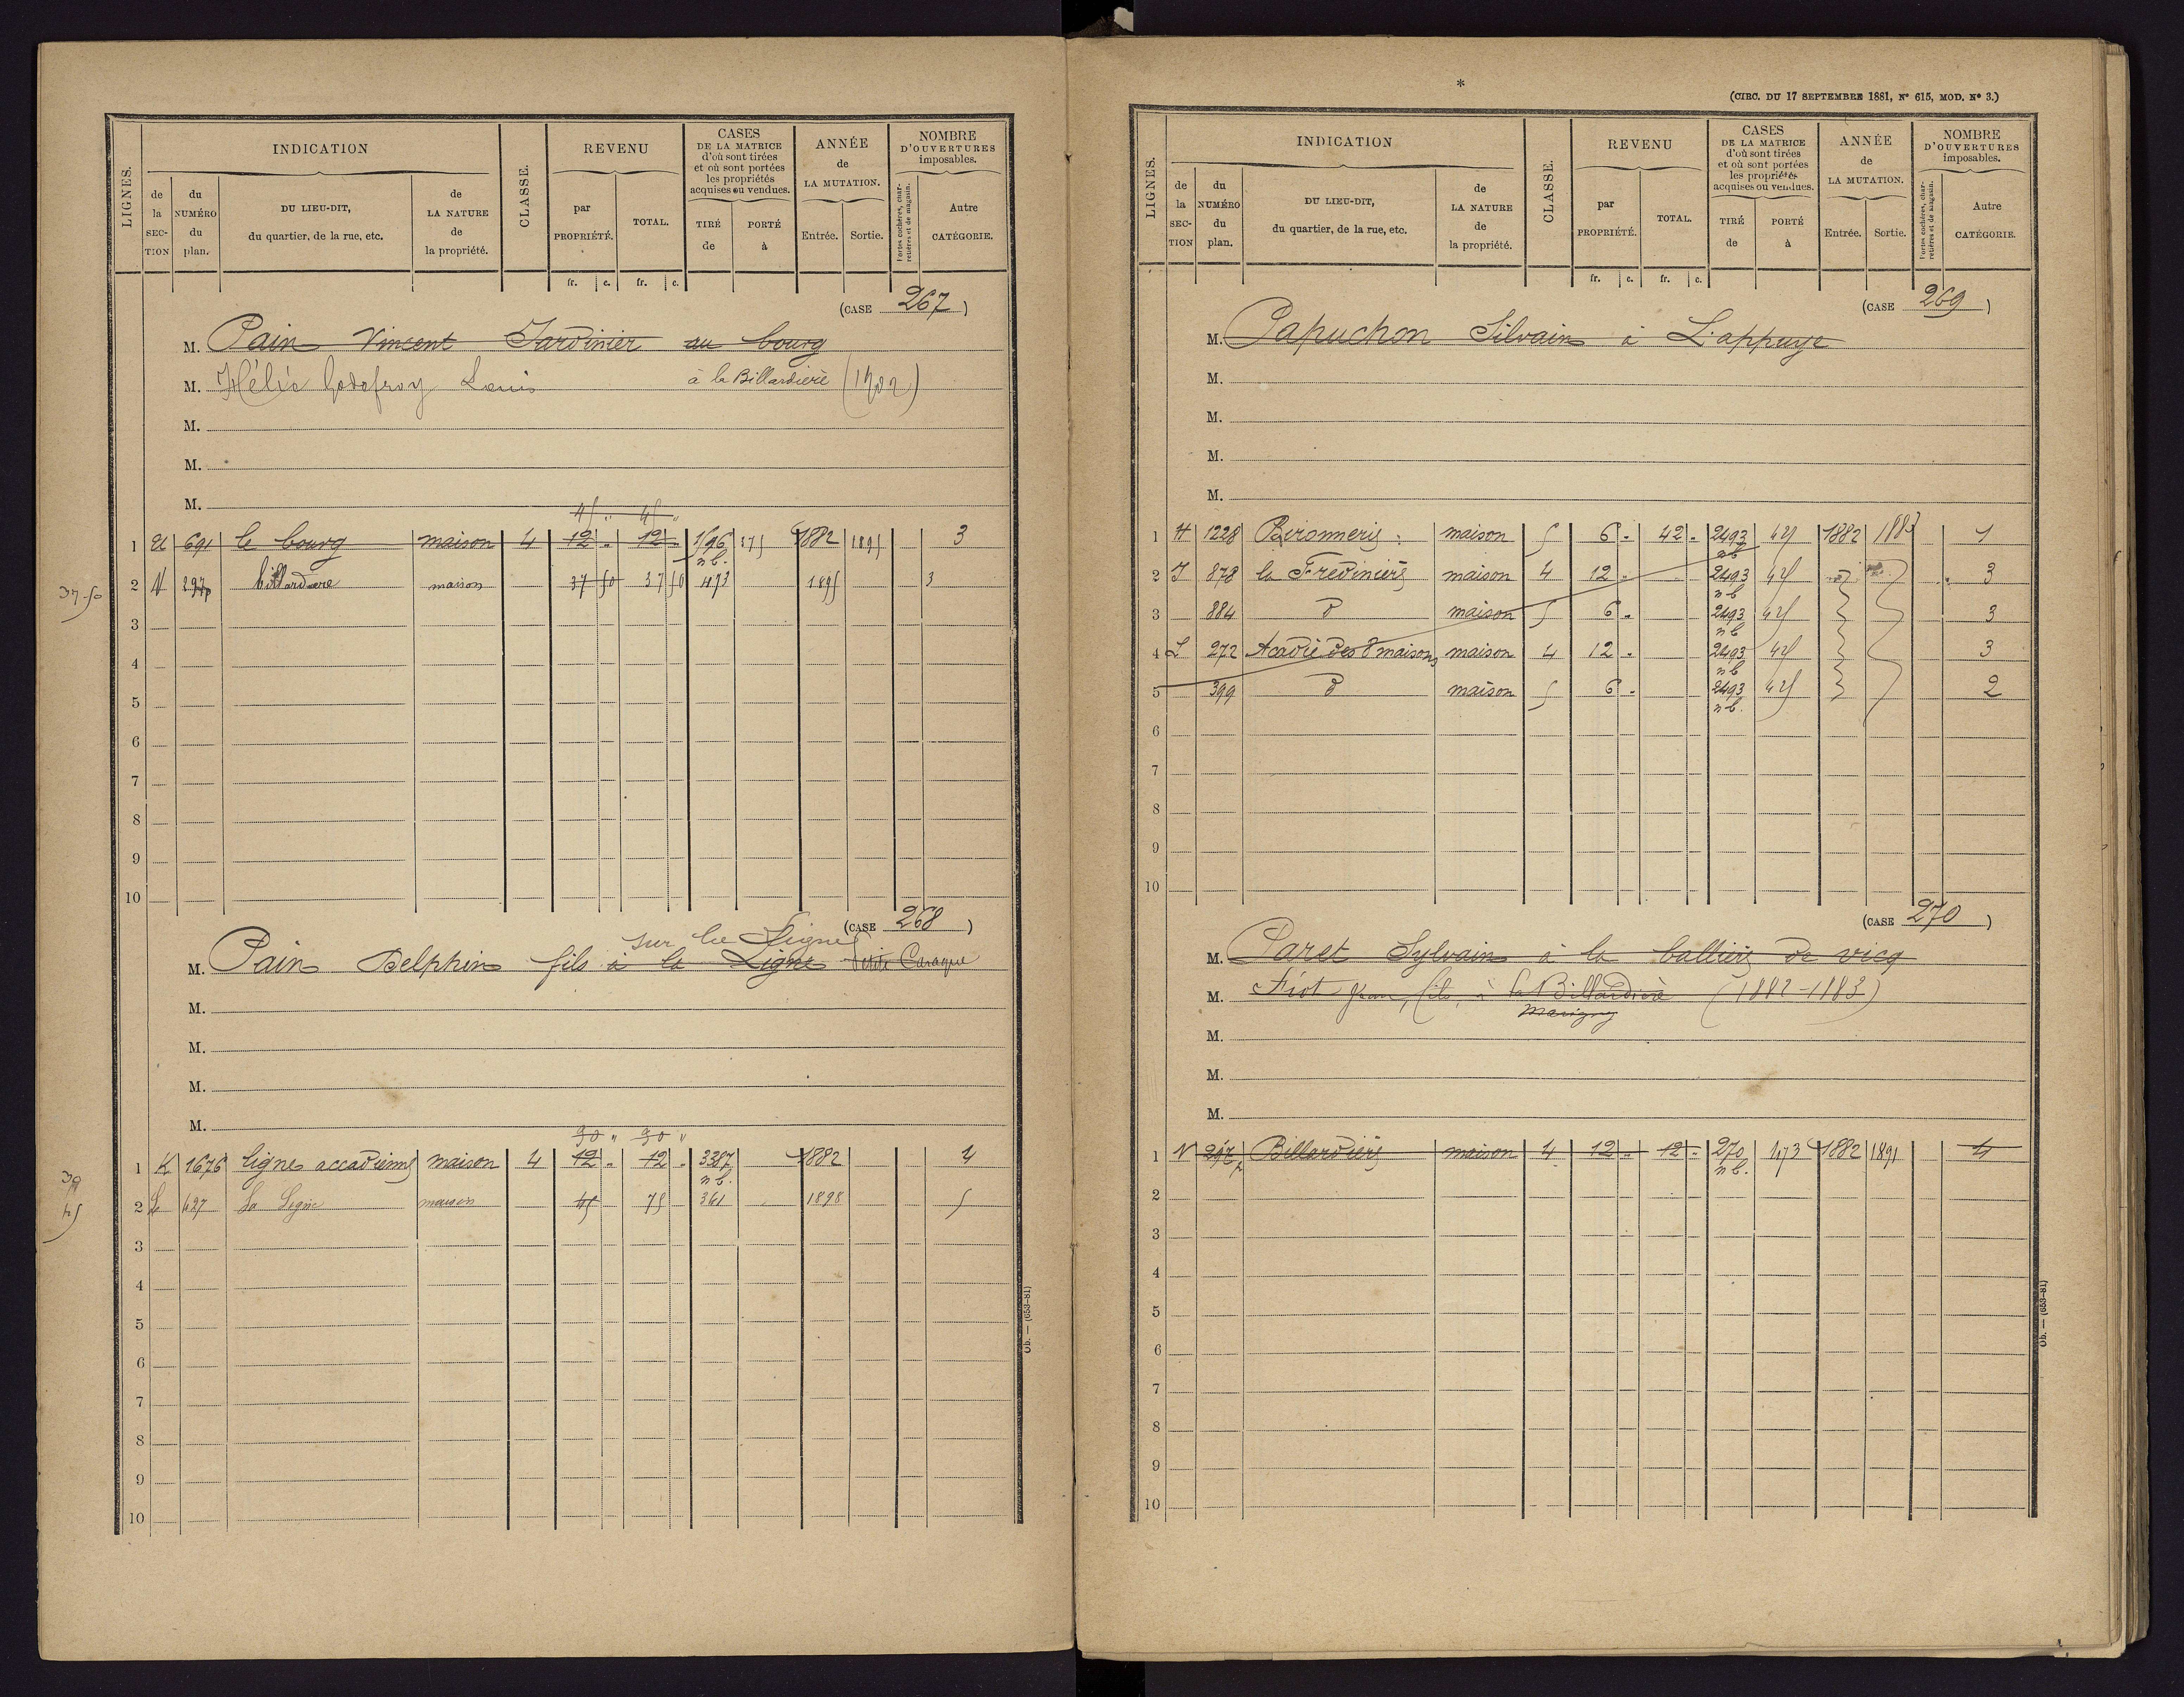 LIGNES.
INDICATION
de la SECTION
du NUMÉRO du plan.
DU LIEU-DIT, du quartier, de la rue, etc.
de LA NATURE de la propriété.
CLASSE.
REVENU
par PROPRIÉTÉ.
TOTAL.
CASES DE LA MATRICE d'où sont tirées et où sont portées les propriétés acquises ou vendues.
TIRÉ de
PORTÉ à
ANNÉE de LA MUTATION.
Entrée.
Sortie.
NOMBRE D'OUVERTURES imposables.
Portes cochères, charretières et de magasin.
Autre CATÉGORIE.
fr. c. fr. c.
(CASE 267)
M. Pain Vincent Jardinier au bourg
M. Hélie Godefroy Louis à la Billardière (1902)
M.
M.
M.
45 " 45 "
1 691 le bourg maison 4 12 " 12 " 1/96 275 1882 1895 3
nb.
37.50 2 N 297p billardiere maison 37 50 37 50 473 1895 3
3
4
5
6
7
8
9
10
(CASE 268)
sur la Ligne
M. Pain Delphin fils à la Ligne Petite Caraque
M.
M.
M.
M.
30 " 30 "
1 K 1676 ligne accadienne maison 4 12 " 12 " 3387 1882 4
nb.
2 L 427 La Ligne maison 45 75 361 1898 5
3
4
5
6
7
8
9
10
Ob. — (653-81)
*
(CIRC. DU 17 SEPTEMBRE 1881, N° 615, MOD. N° 3.)
LIGNES.
INDICATION
de la SECTION
du NUMÉRO du plan.
DU LIEU-DIT, du quartier, de la rue, etc.
de LA NATURE de la propriété.
CLASSE.
REVENU
par PROPRIÉTÉ.
TOTAL.
CASES DE LA MATRICE d'où sont tirées et où sont portées les propriétés acquises ou vendues.
TIRÉ de
PORTÉ à
ANNÉE de LA MUTATION.
Entrée.
Sortie.
NOMBRE D'OUVERTURES imposables.
Portes cochères, charretières et de magasin.
Autre CATÉGORIE.
fr. c. fr. c.
(CASE 269)
M. Papuchon Silvain à L'appuye
M.
M.
M.
M.
1 H 1228 maison 5 6 " 42 " 2493 425 1882 1883 1
nb
2 J 878 la Fredinière maison 4 12 " 2493 425 3
nb
3 884 d maison 5 6 " 2493 425 3
nb
4 L 272 Acadie des 8 maisons maison 4 12 " 2493 425 3
nb
5 399 d maison 5 6 " 2493 425 2
nb.
6
7
8
9
10
(CASE 270)
M. Paret Sylvain à la ballière de vicq
M. Fiot Jean, fils, à la Billardière (1882-1883)
Marigny
M.
M.
M.
1 N 297p Billardière maison 4 12 " 12 " 270 173 1882 1891 4
nb.
2
3
4
5
6
7
8
9
10
Ob. — (653-81)